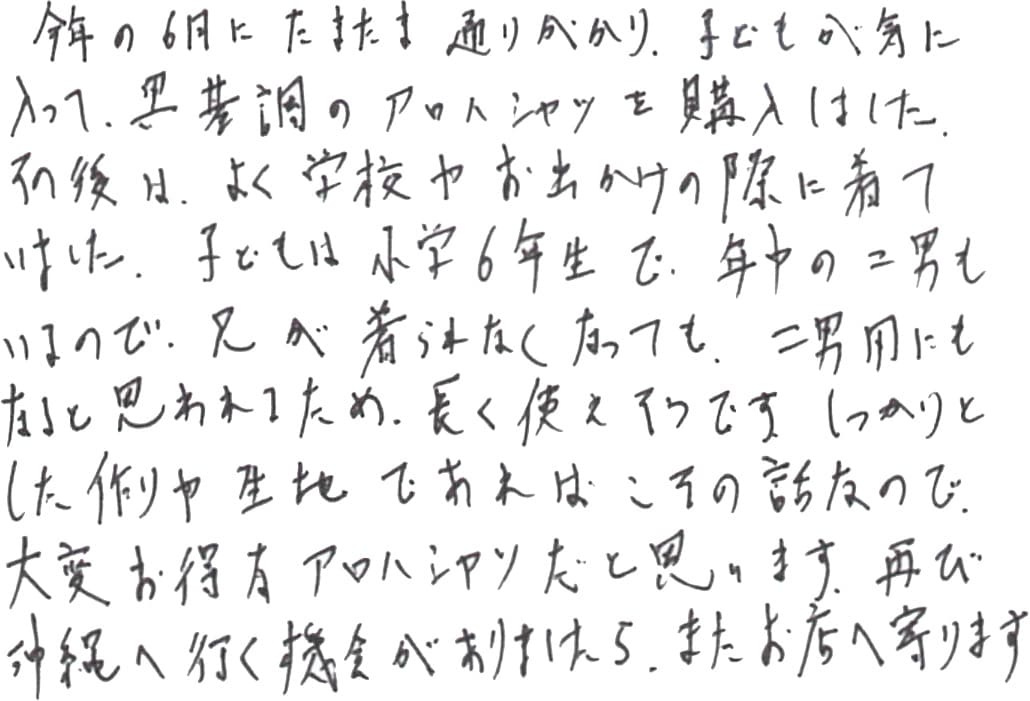 今年の6月にたまたま通りがかり、子どもが気に
入って、黒基調のアロハシャツを購入しました。
その後は、よく学校やお出かけの際に着て
いました。子どもは小学6年生で、年中の二男も
いるので、兄が着られなくなっても、二男用にも
なると思われるため、長く使えそうです。しっかりと
した作りや生地であればこその話なので、
大変お得なアロハシャツだと思います。再び
沖縄へ行く機会がありましたら、またお店へ寄ります